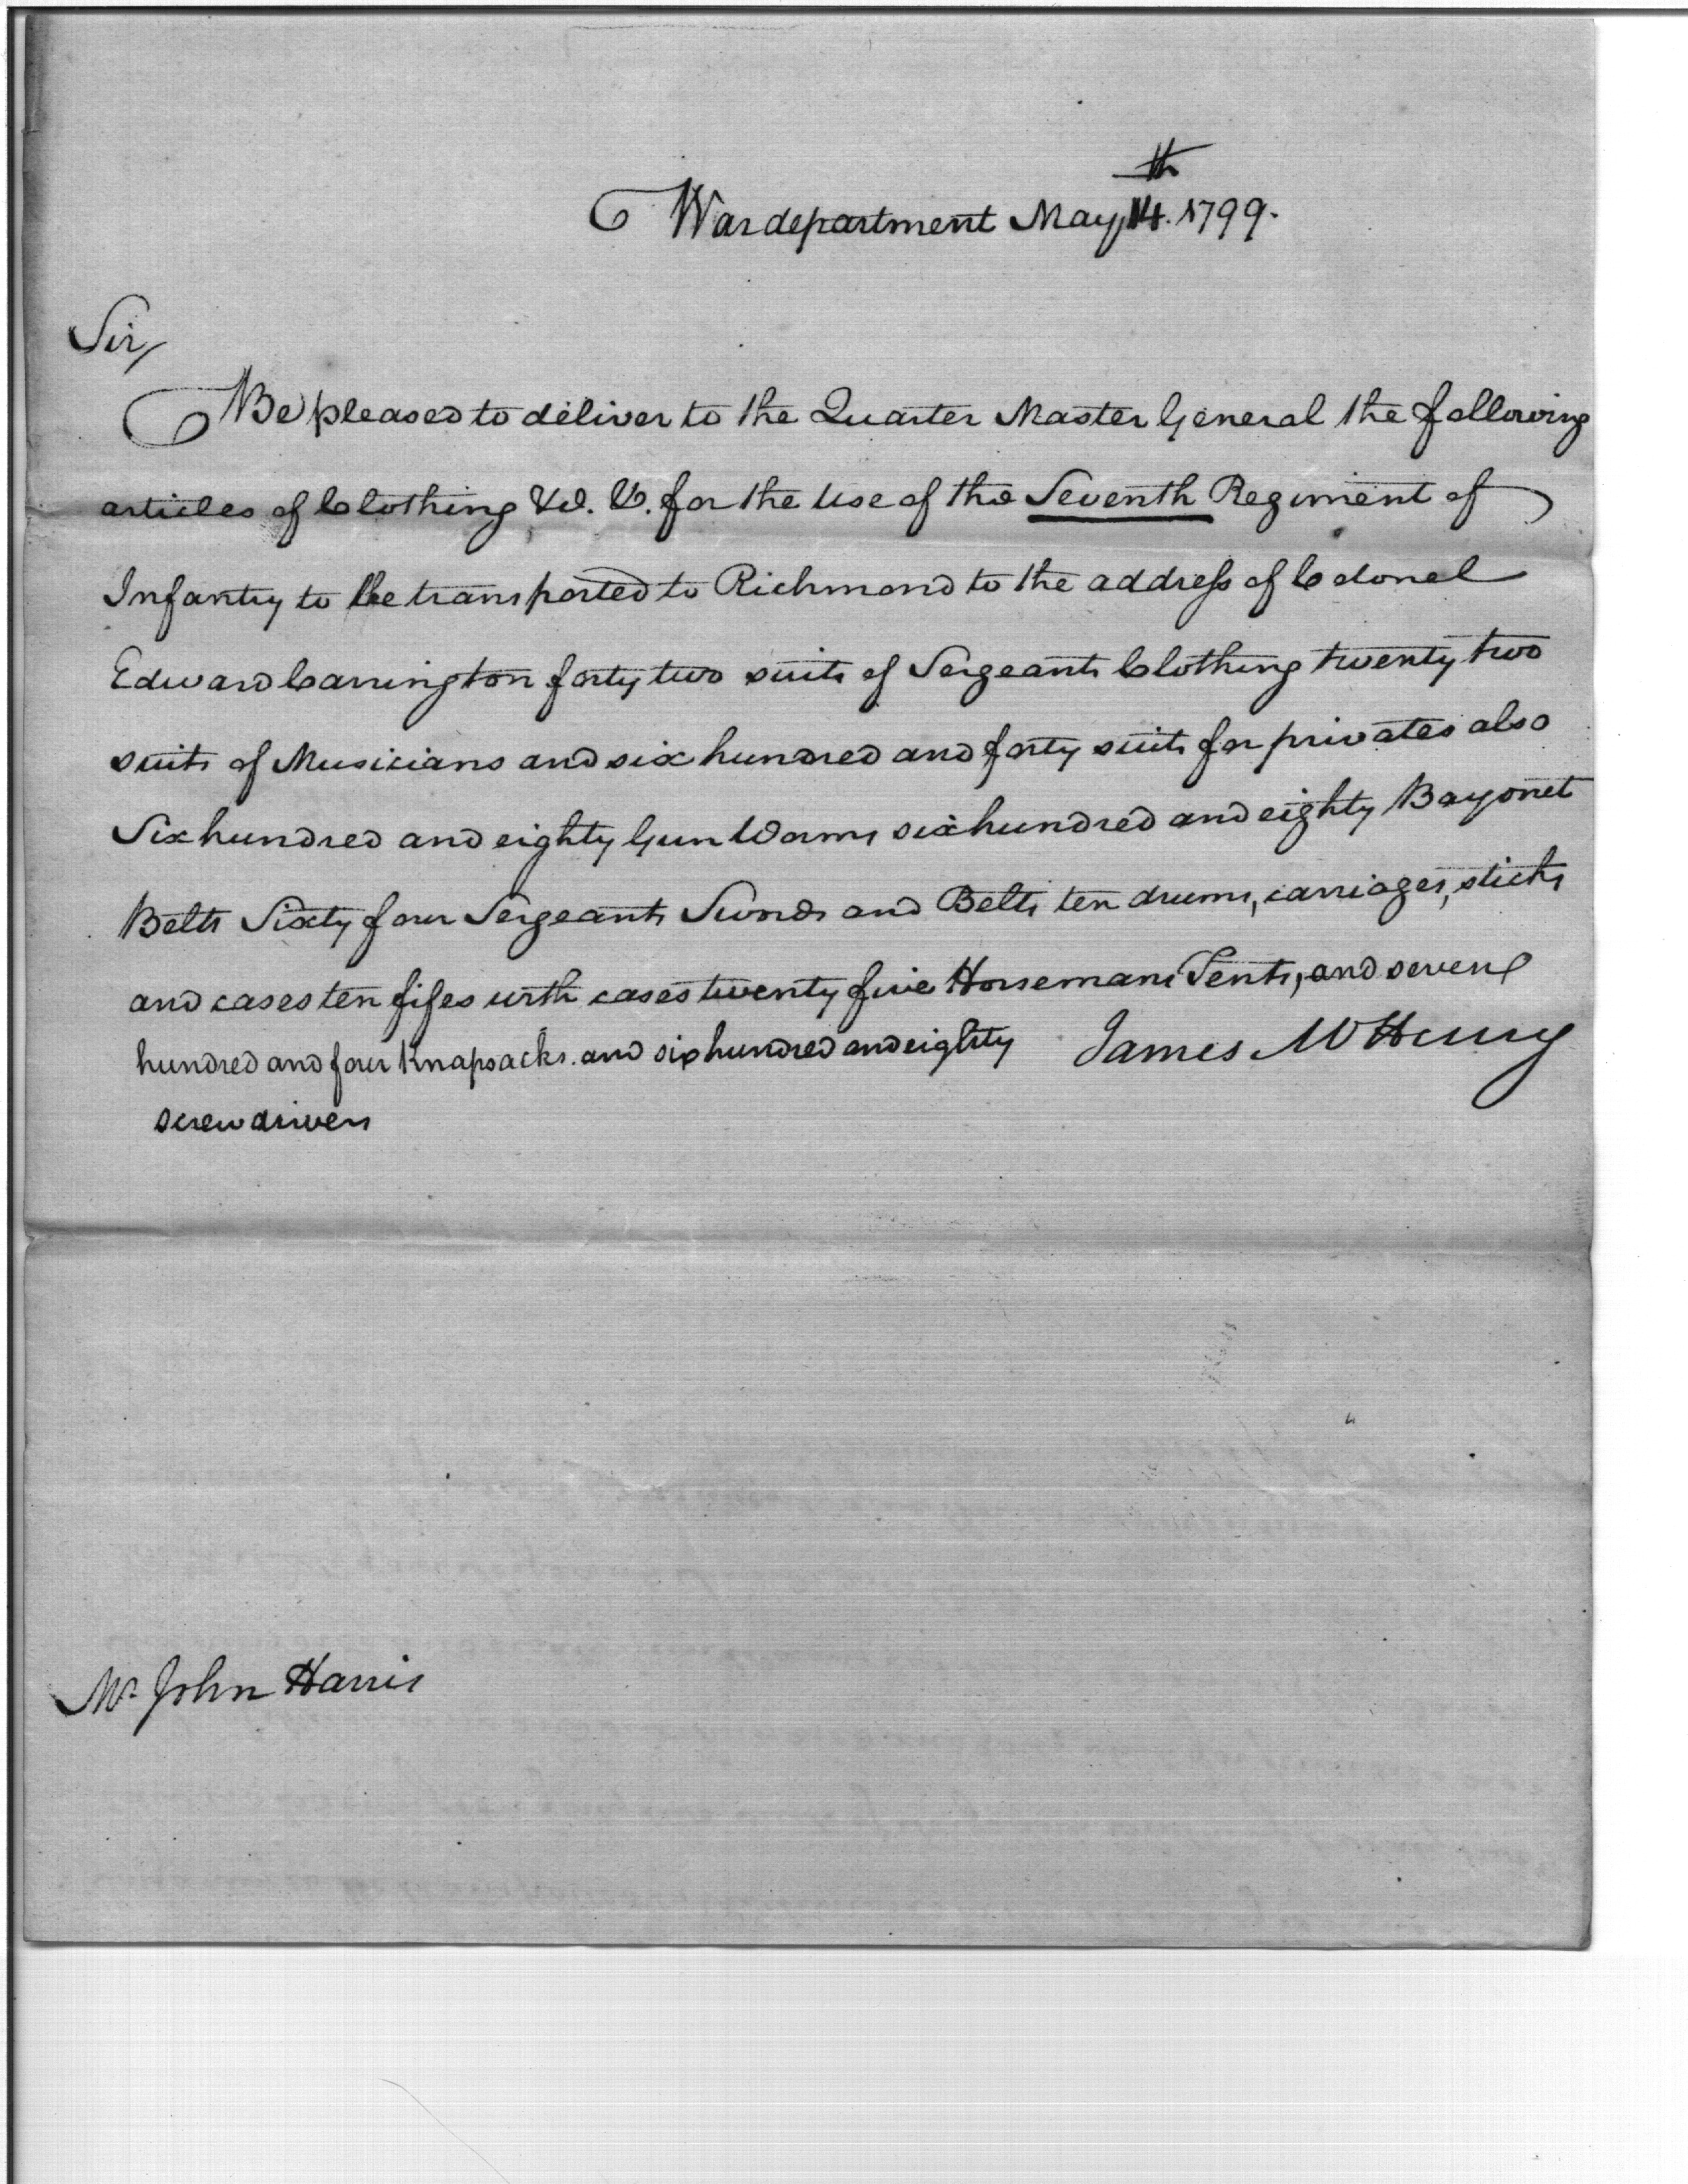 War department May 14th. 1799.
Sir,
Be pleased to deliver to the Quarter Master General the following
articles of Clothing &c. &c. for the use of the Seventh Regiment of
Infantry to be transported to Richmond to the address of Colonel
Edward Carrington forty two suits of Sergeants Clothing twenty two
suits of Musicians and six hundred and forty suits for privates also
Six hundred and eighty Gun Worms six hundred and eighty Bayonet
Belts Sixty four Sergeants Swords and Belts ten drums, carriages, sticks
and cases ten fifes with cases twenty five Horsemans Tents, and seven
hundred and four Knapsacks. and six hundred and eighty
screw drivers
James McHenry
Mr John Harris